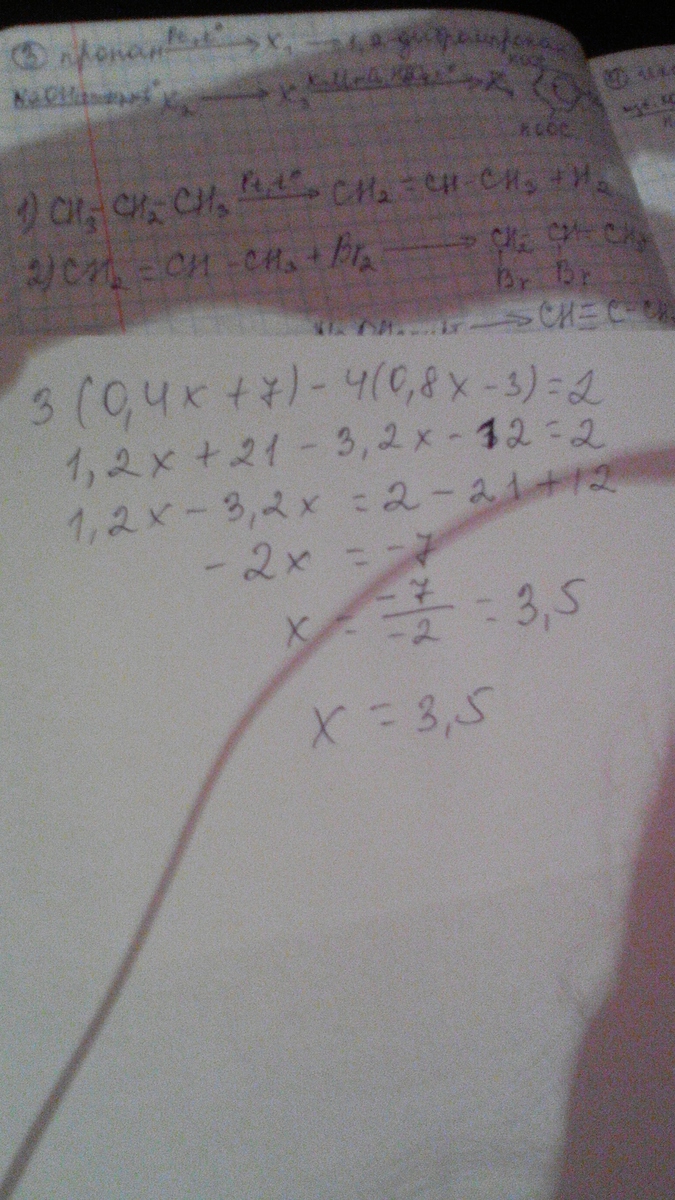 ③ пропан Pt, t° → X₁ → 1,2-дибромпропан
X₂ → X₃
1) CH₃-CH₂-CH₃ Pt, t° → CH₂=CH-CH₃ + H₂
2) CH₂=CH-CH₃ + Br₂ → CH₂-CH-CH₃
Br Br
→ CH≡C-CH₃
3(0,4x+7)-4(0,8x-3)=2
1,2x+21-3,2x-12=2
1,2x-3,2x=2-21+12
-2x=-7
x=-7/-2=3,5
x=3,5